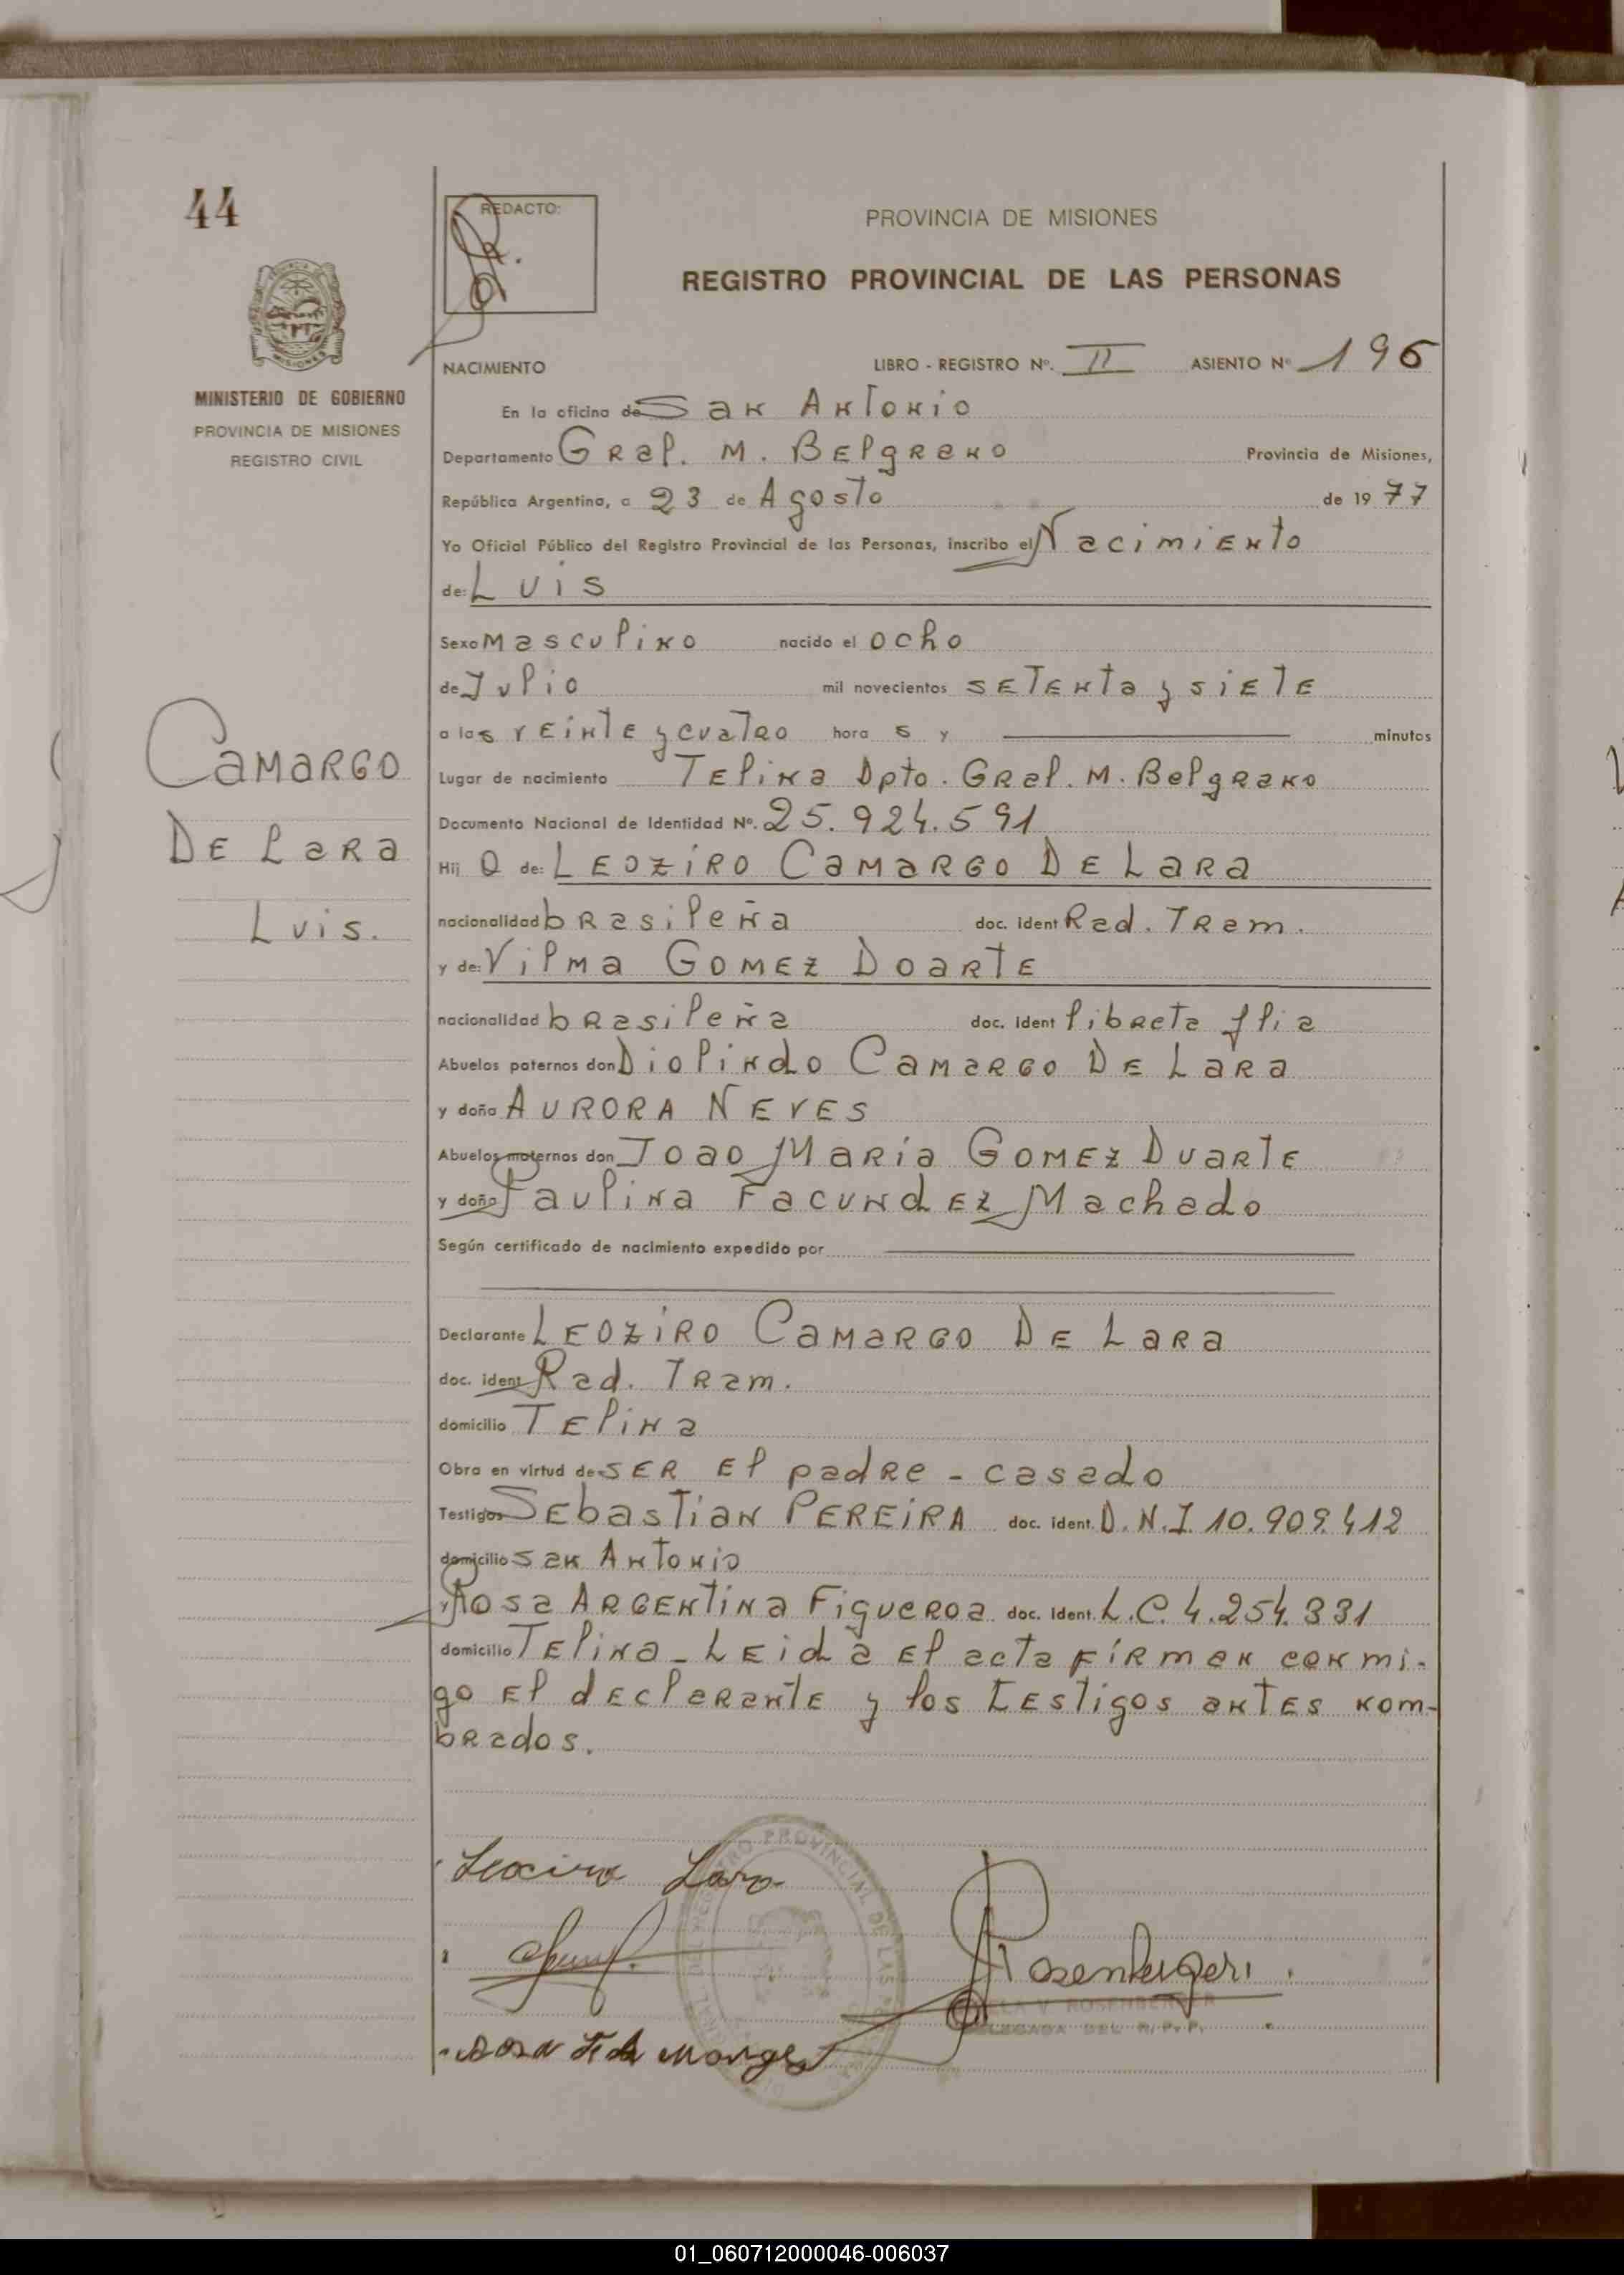 44
REDACTO:
PROVINCIA DE MISIONES
REGISTRO PROVINCIAL DE LAS PERSONAS
MINISTERIO DE GOBIERNO
PROVINCIA DE MISIONES
REGISTRO CIVIL
NACIMIENTO LIBRO - REGISTRO Nº. II ASIENTO Nº 196
En la oficina de San Antonio
Departamento Gral. M. Belgrano Provincia de Misiones,
República Argentina, a 23 de Agosto de 1977
Yo Oficial Público del Registro Provincial de las Personas, inscribo el Nacimiento
de: Luis
Sexo Masculino nacido el ocho
de Julio mil novecientos setenta y siete
a las veinte y cuatro hora s y minutos
Camargo
De Lara
Luis.
Lugar de nacimiento Telina Dpto. Gral. M. Belgrano
Documento Nacional de Identidad Nº. 25.924.591
Hij o de: Leoziro Camargo De Lara
nacionalidad brasileña doc. ident Rad. Tram.
y de: Vilma Gomez Doarte
nacionalidad brasileña doc. ident libreta flia
Abuelos paternos don Diolindo Camargo De Lara
y doña Aurora Neves
Abuelos maternos don Joao Maria Gomez Duarte
y doña Paulina Facundez Machado
Según certificado de nacimiento expedido por
Declarante Leoziro Camargo De Lara
doc. ident Rad. Tram.
domicilio Telina
Obra en virtud de ser el padre - casado
Testigos Sebastian Pereira doc. ident. D.N.I. 10.909.412
domicilio San Antonio
y Rosa Argentina Figueroa doc. ident. L.C. 4.254.331
domicilio Telina - Leida el acta firman conmi-
go el declarante y los testigos antes nom-
brados.
Leoziro Lara
Rosenberger
ROSENBERGER
DELEGADA DEL R. P. P.
01_060712000046-006037